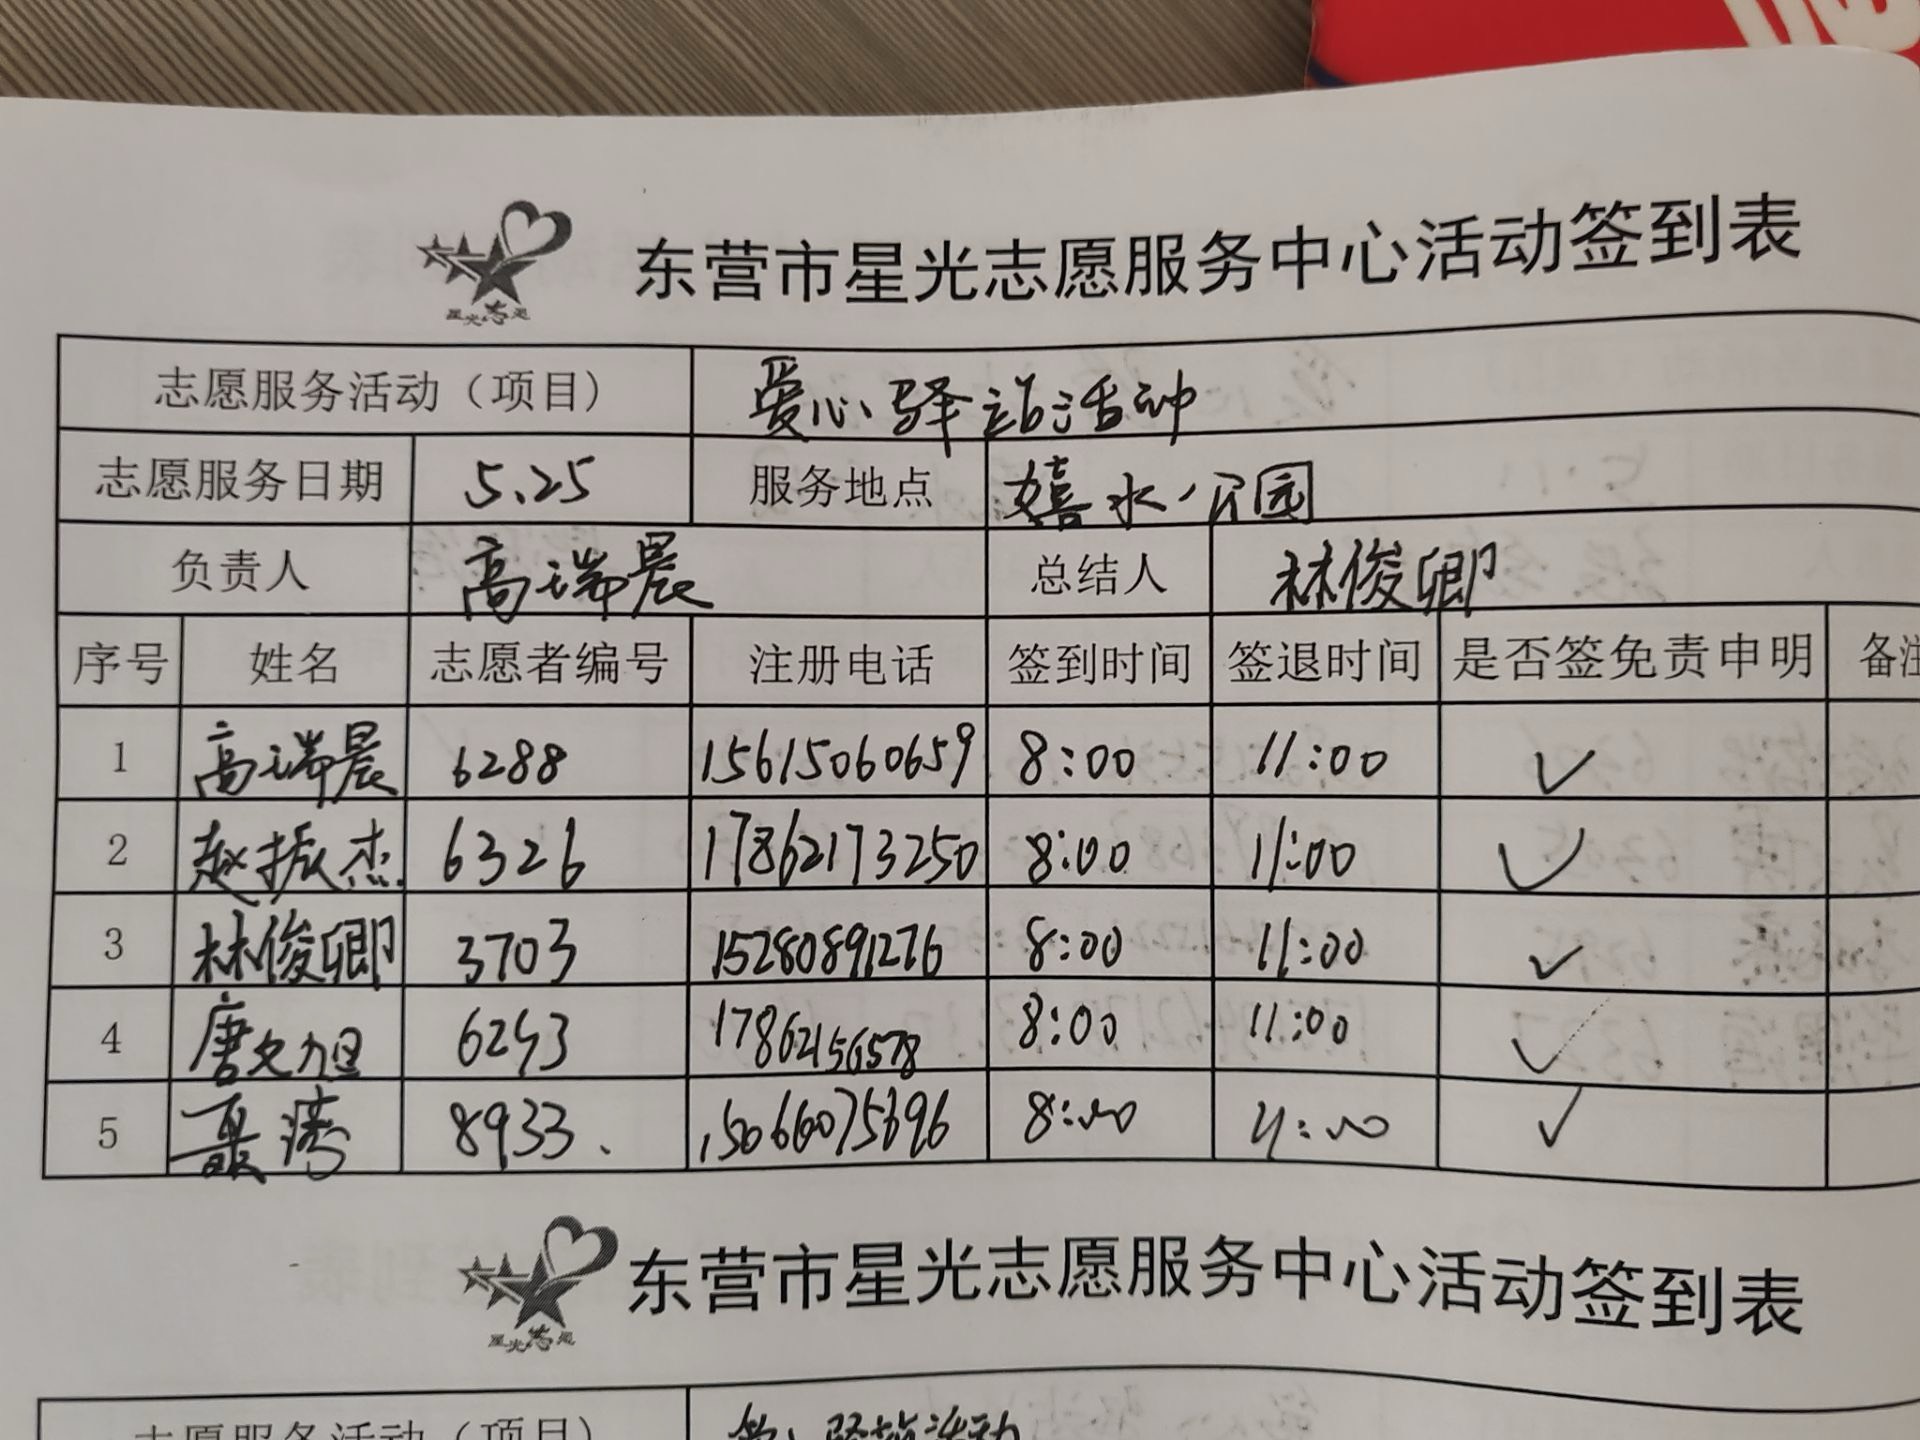 东营市星光志愿服务中心活动签到表
星光志愿
志愿服务活动（项目） 爱心驿站活动
志愿服务日期 5.25 服务地点 嬉水公园
负责人 高瑞晨 总结人 林俊卿
序号 姓名 志愿者编号 注册电话 签到时间 签退时间 是否签免责申明 备注
1 高瑞晨 6288 15615060659 8:00 11:00 ✓
2 赵振杰 6326 17862173250 8:00 11:00 ✓
3 林俊卿 3703 15280891276 8:00 11:00 ✓
4 唐文旭 6243 17862156578 8:00 11:00 ✓
5 聂涛 8933 15066075696 8:00 11:00 ✓
东营市星光志愿服务中心活动签到表
星光志愿
志愿服务活动（项目） 爱心驿站活动